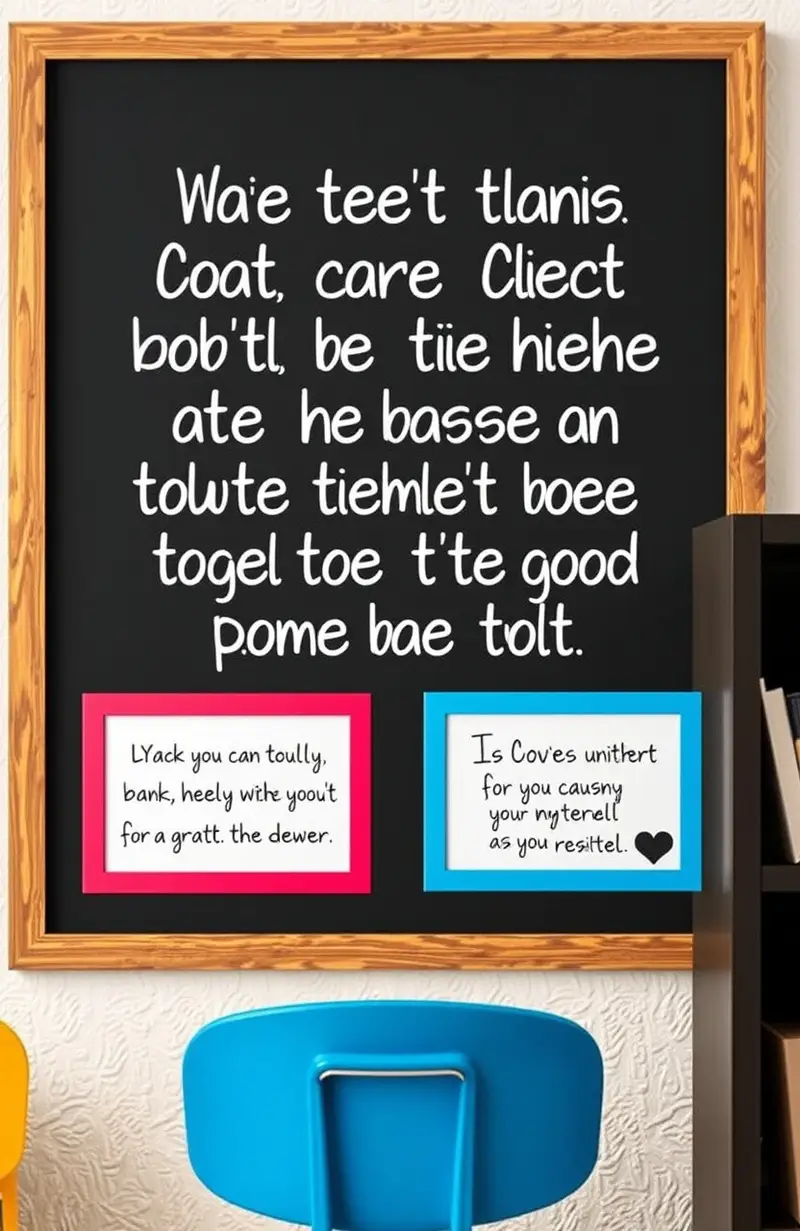 Wa'e tee't tlanis.
Coat, care Cliect
bob'tl, be tiie hiehe
ate he basse an
tolute tiehmle't boee
togel toe t'te good
p.ome bae tolt.
LYack you can toully,
bank, heely withe yoou't
for a gratt. the dewer.
Is Cov'es unithert
for you causny
your nyterell
as you resiittel.